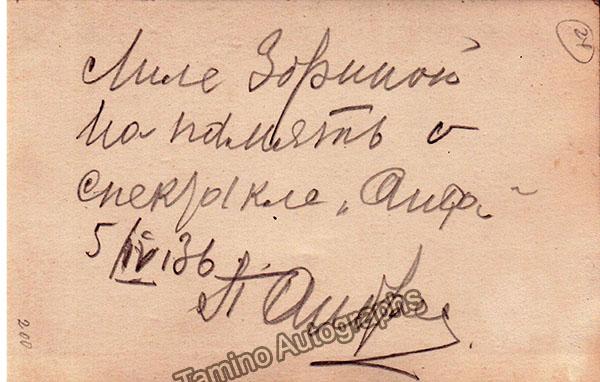 Лиле Зориной
на память о
спектакле „Аида“
5/IV 36.
П.
Tamino Autographs
200